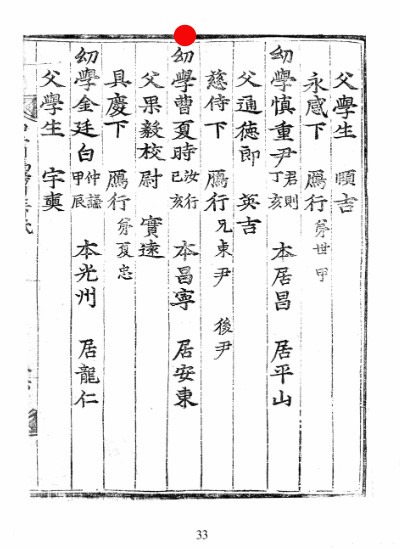 父學生 順吉
永感下 鴈行 弟世甲
幼學慎重尹 君則 丁亥 本居昌 居平山
父通德郎 英吉
慈侍下 鴈行 兄東尹 後尹
幼學曹夏時 汝行 己亥 本昌寧 居安東
父果毅校尉 實遠
具慶下 鴈行 弟夏忠
幼學金廷白 甲辰 本光州 居龍仁
父學生 宇奭
33